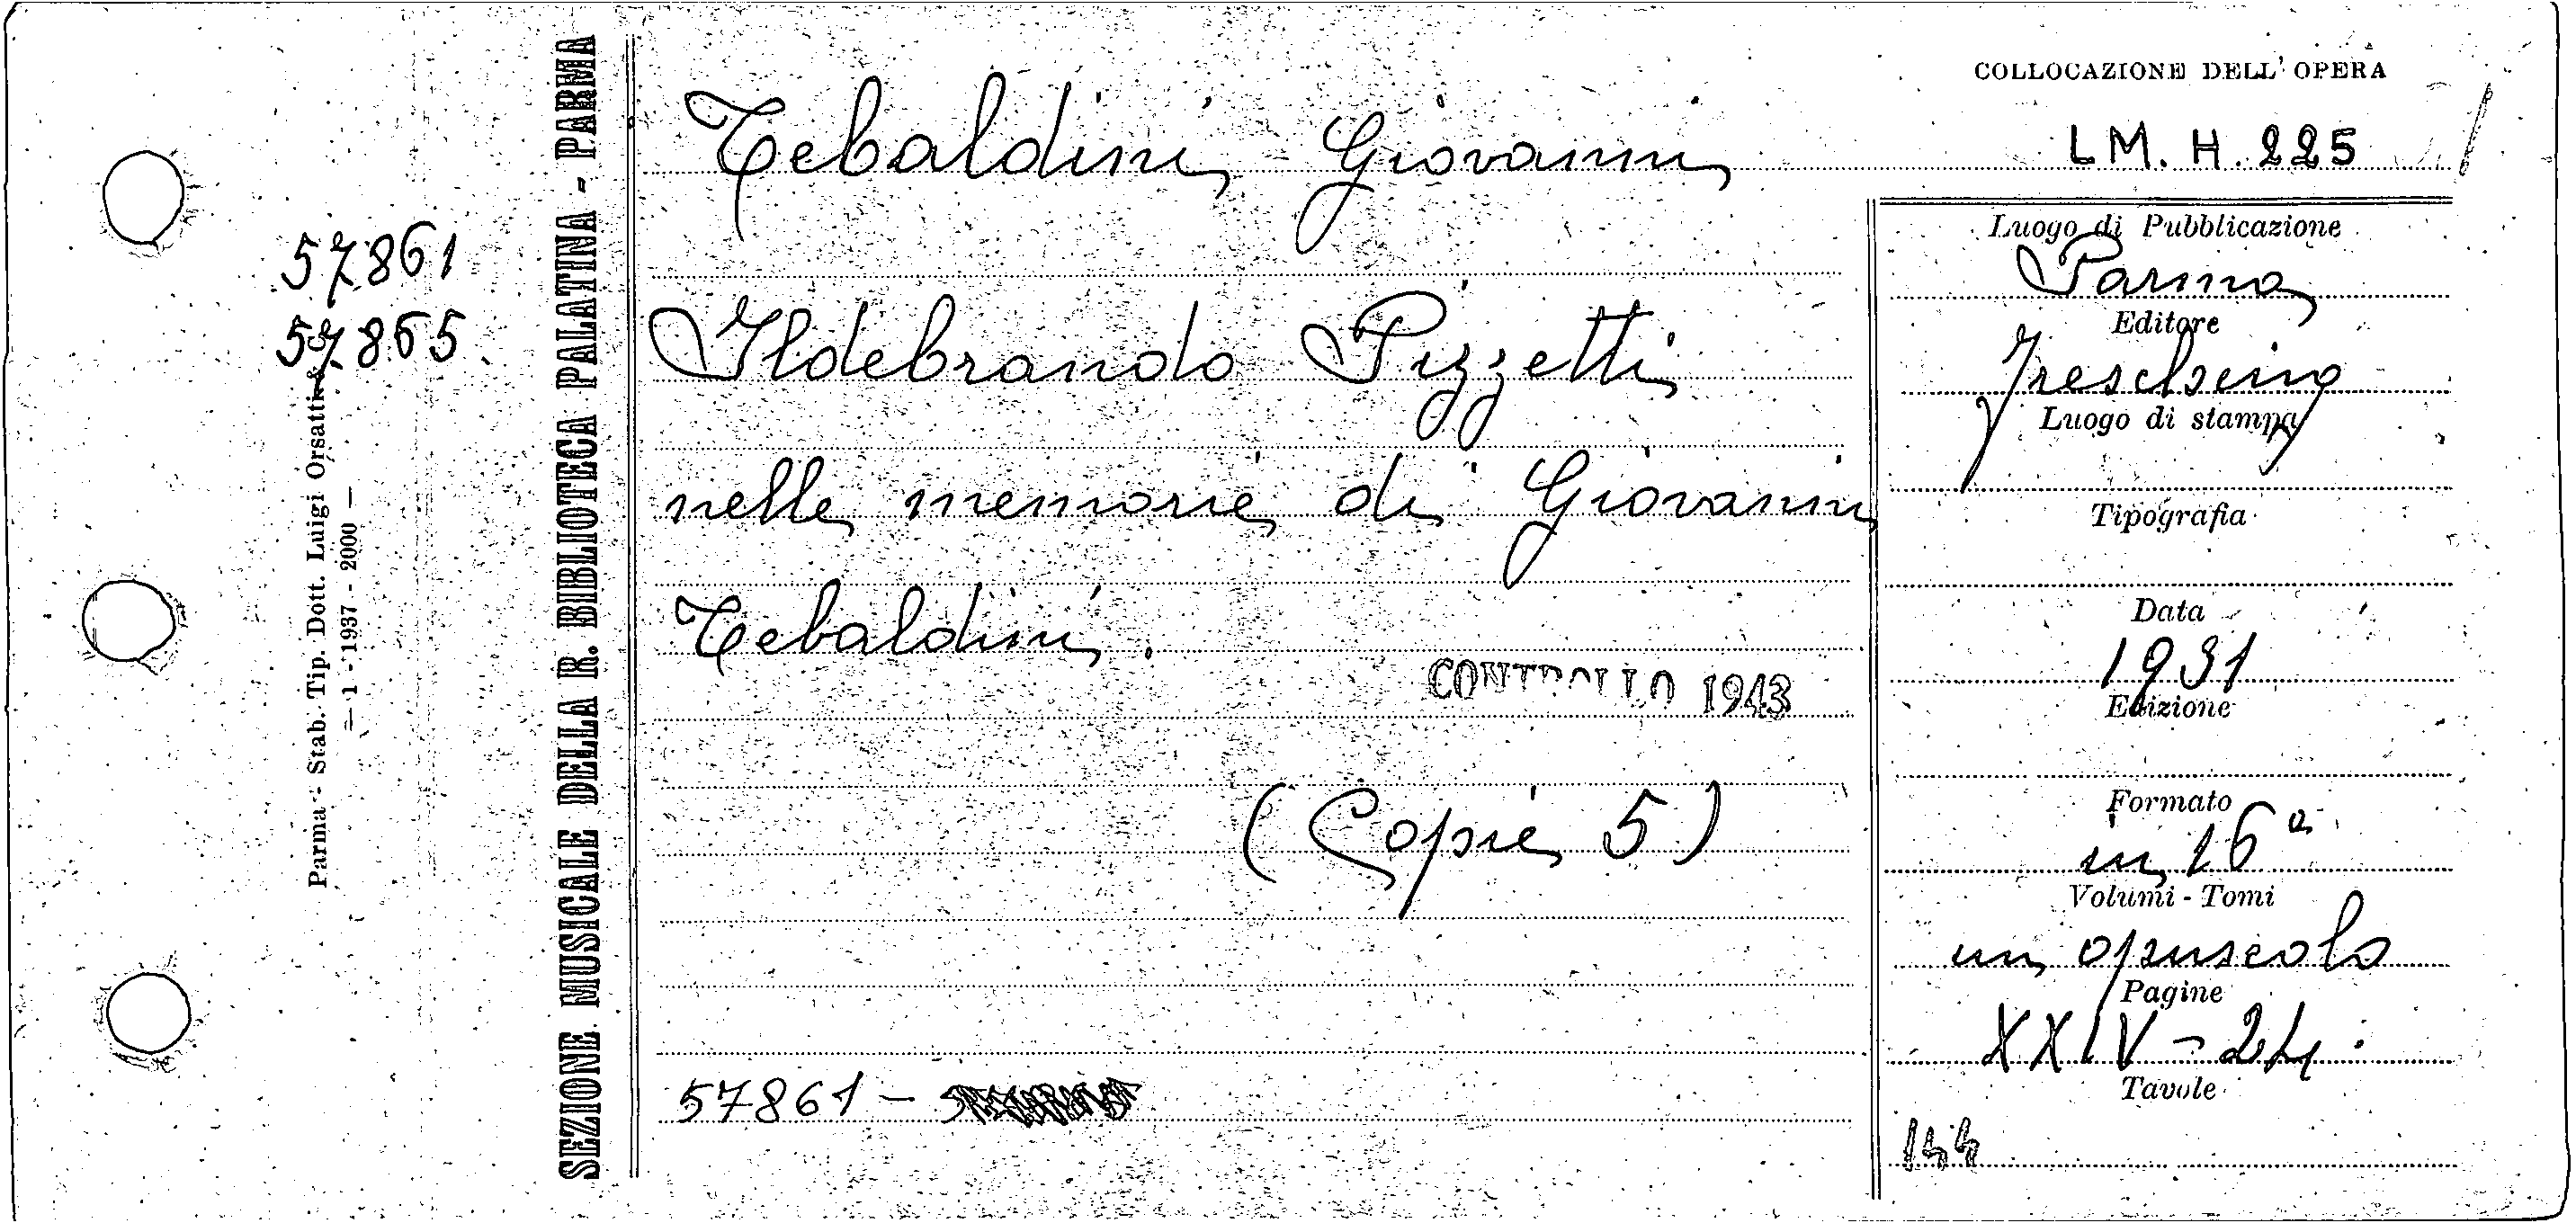 COLLOCAZIONE DELL' OPERA
LM. H. 225
Tebaldini Giovanni
Ildebrando Pizzetti
nelle memorie di Giovanni
Tebaldini.
CONTROLLO 1943
(Copie 5)
57861 -
57861
57865
Parma - Stab. Tip. Dott. Luigi Orsatti &
- 1 - 1937 - 2000 -
SEZIONE MUSICALE DELLA R. BIBLIOTECA PALATINA - PARMA
Luogo di Pubblicazione
Parma
Editore
Freschino
Luogo di stampa
Tipografia
Data
1931
Edizione
Formato
in 16°
Volumi - Tomi
un opuscolo
Pagine
XXIV - 24.
Tavole
144